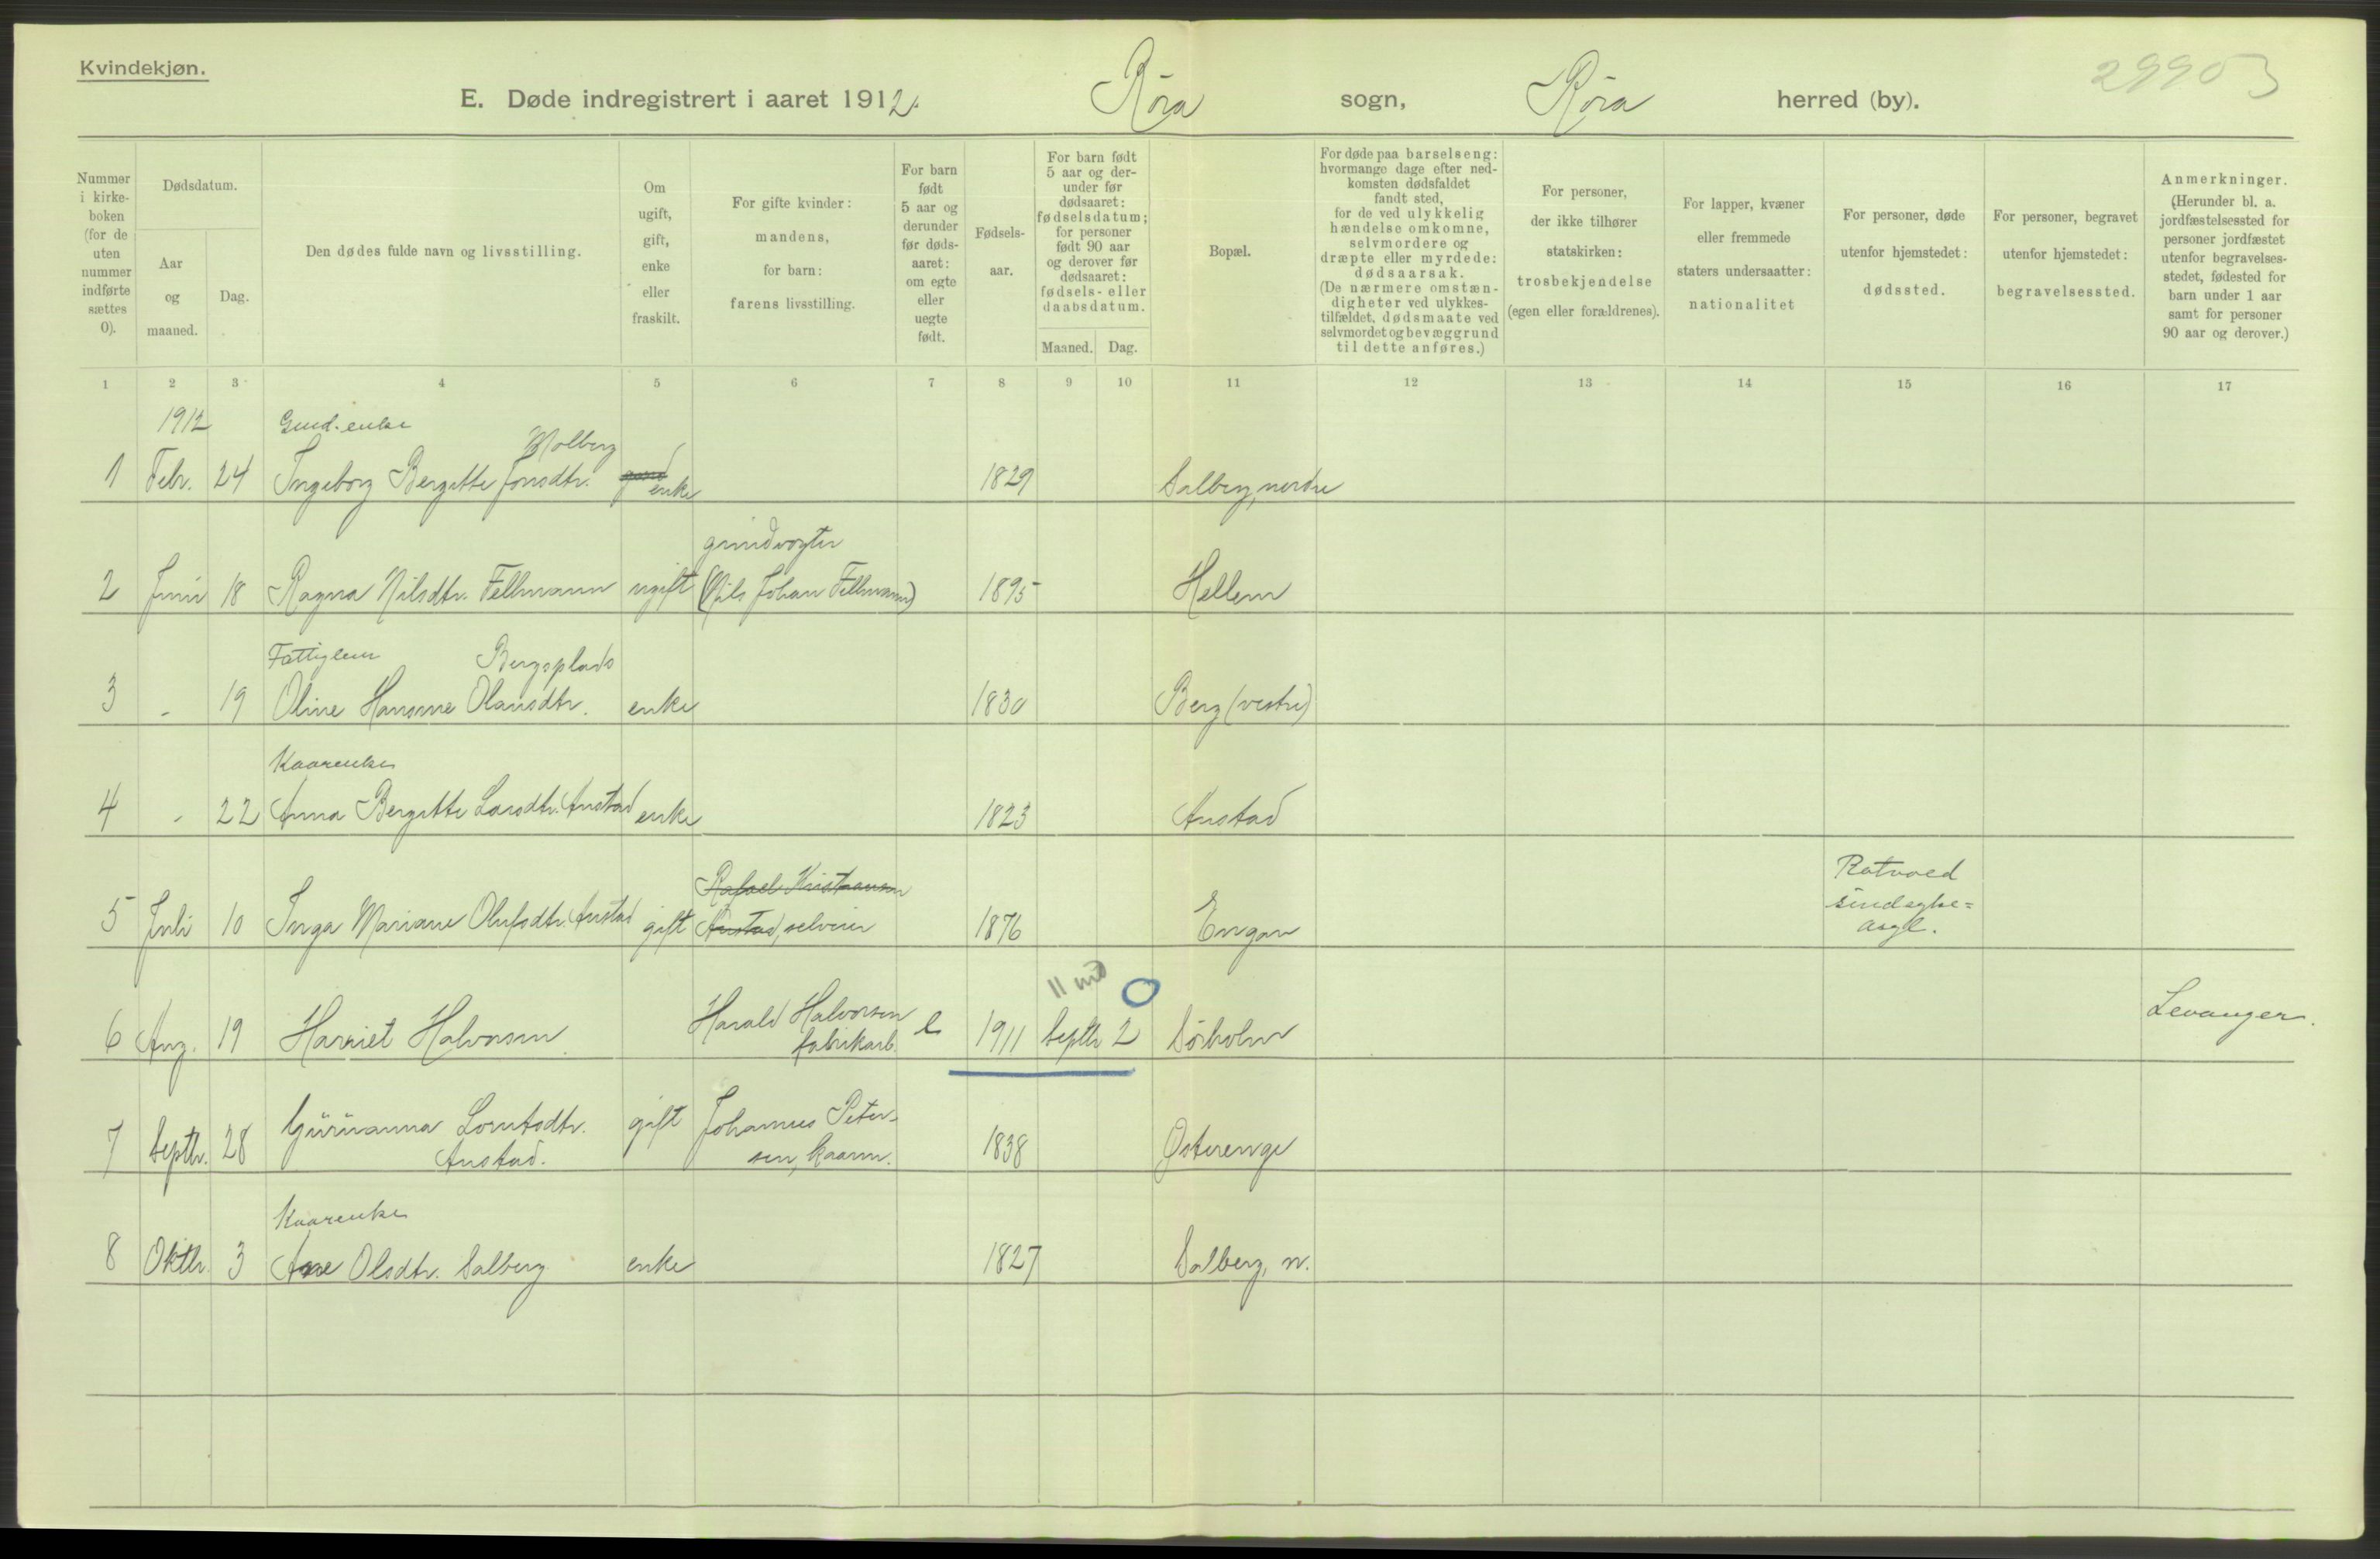 Kvindekjøn.
29903
E. Døde indregistrert i aaret 1912. Röra sogn, Röra herred (by).
Nummer i kirke-boken (for de uten nummer indførte sættes 0).
Dødsdatum.
Aar og maaned.
Dag.
Den dødes fulde navn og livsstilling.
Om ugift, gift, enke eller fraskilt.
For gifte kvinder: mandens, for barn: farens livsstilling.
For barn født 5 aar og derunder før døds-aaret: om egte eller uegte født.
Fødsels-aar.
For barn født 5 aar og der-under før dødsaaret: fødselsdatum; for personer født 90 aar og derover før dødsaaret: fødsels- eller daabsdatum.
Maaned. Dag.
Bopæl.
For døde paa barselseng: hvormange dage efter ned-komsten dødsfaldet fandt sted, for de ved ulykkelig hændelse omkomne, selvmordere og dræpte eller myrdede: dødsaarsak. (De nærmere omstæn-digheter ved ulykkes-tilfældet, dødsmaate ved selvmordet og bevæggrund til dette anføres.)
For personer, der ikke tilhører statskirken: trosbekjendelse (egen eller forældrenes).
For lapper, kvæner eller fremmede staters undersaatter: nationalitet
For personer, døde utenfor hjemstedet: dødssted.
For personer, begravet utenfor hjemstedet: begravelsessted.
Anmerkninger. (Herunder bl. a. jordfæstelsessted for personer jordfæstet utenfor begravelses-stedet, fødested for barn under 1 aar samt for personer 90 aar og derover.)
1 2 3 4 5 6 7 8 9 10 11 12 13 14 15 16 17
1912 Gaud.enke
1 Febr. 24 Ingeborg Bergitte Jonsdtr. enke 1829 Salberg, nordre
grindvogter
2 Juni 18 Ragna Nilsdtr. Fellmann ugift (Nils Johan Fellmann) 1895 Hellem
Fattiglem Bergsplads
3 - 19 Oline Hansine Olausdtr. enke 1830 Berg (vestre)
Kaarenke
4 - 22 Anna Bergitte Larsdtr. Austad enke 1823 Austad
Rafael Kristiansen Rotvold
5 Juli 10 Inga Mariane Olufsdtr. Austad gift Austad, selveier 1876 Engan sindsyke=
asyl.
11 md 0
6 Aug. 19 Harriet Halvorsen Harald Halvorsen e 1911 Septbr 2 Sörholm Levanger.
fabrikarb.
7 Septbr. 28 Gürüanna Lorntsdtr. gift Johannes Peter-
Austad. sen, kaarm. 1838 Østerenge
Kaarenke
8 Oktbr. 3 Ane Olsdtr. Salberg enke 1827 Salberg, n.